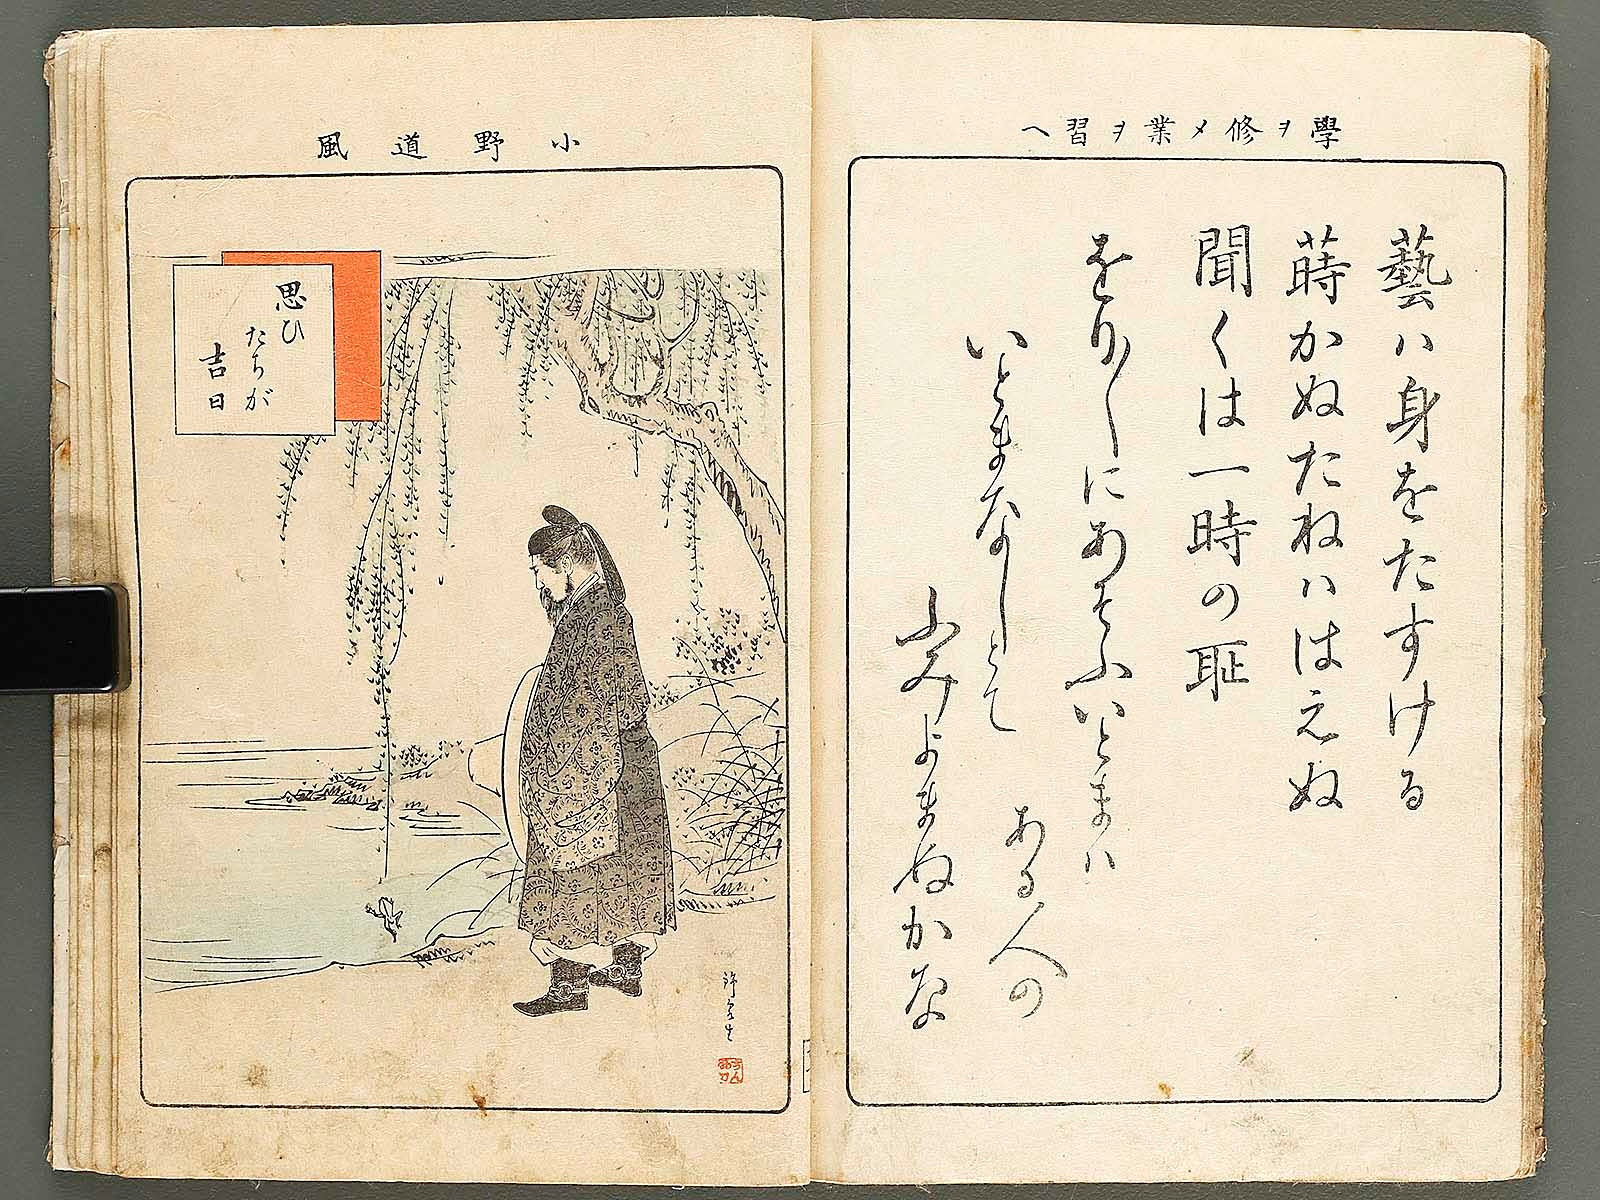 學ヲ修メ業ヲ習ヘ
藝ハ身をたすける
蒔かぬたねハはえぬ
聞くは一時の耻
をり〱にあそふいとまハ
ある人の
いとまなしとて
ふみよまぬかな
小野道風
思ひ
たちが
吉日